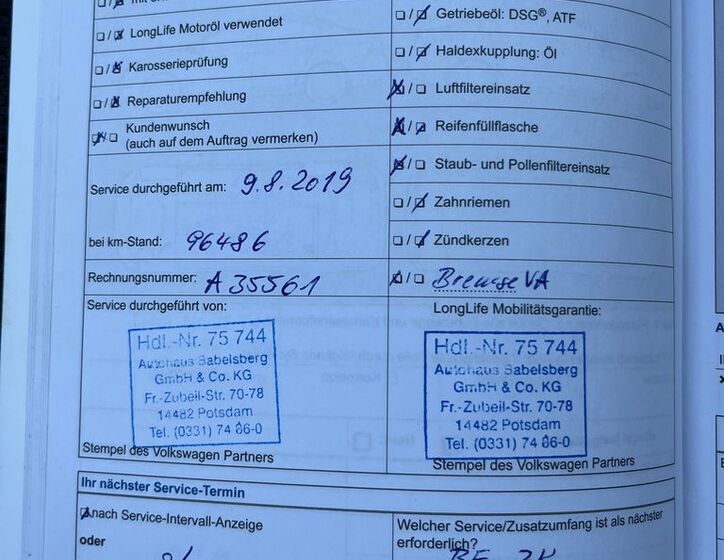 LongLife Motoröl verwendet
Karosserieprüfung
Reparaturempfehlung
Kundenwunsch
(auch auf dem Auftrag vermerken)
Service durchgeführt am: 9.8.2019
bei km-Stand: 96486
Rechnungsnummer: A 35561
Getriebeöl: DSG®, ATF
Haldexkupplung: Öl
Luftfiltereinsatz
Reifenfüllflasche
Staub- und Pollenfiltereinsatz
Zahnriemen
Zündkerzen
Bremse VA
Service durchgeführt von:
Hdl.-Nr. 75 744
Autohaus Babelsberg
GmbH & Co. KG
Fr.-Zubeil-Str. 70-78
14482 Potsdam
Tel. (0331) 74 86-0
Stempel des Volkswagen Partners
LongLife Mobilitätsgarantie:
Hdl.-Nr. 75 744
Autohaus Babelsberg
GmbH & Co. KG
Fr.-Zubeil-Str. 70-78
14482 Potsdam
Tel. (0331) 74 86-0
Stempel des Volkswagen Partners
Ihr nächster Service-Termin
nach Service-Intervall-Anzeige
oder
Welcher Service/Zusatzumfang ist als nächster
erforderlich?